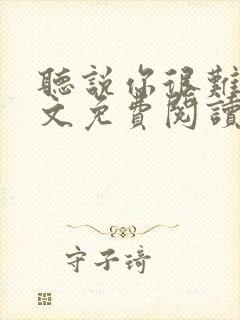 聽說你很難
文免費閱讀
守子琦